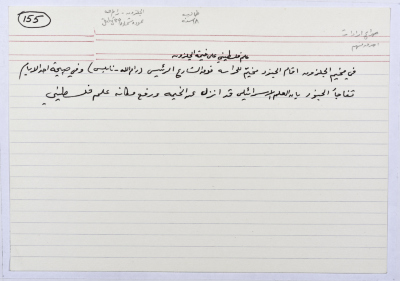 155
علم فلسطيني على خيمة الجلزون
في مخيم الجلزون اقام الجنود مخيم للحراسة فوق الشارع الرئيسي (رام الله - نابلس) وفي صبيحة احد الايام
تفاجأ الجنود بان العلم الاسرائيلي قد انزل عن الخيمة ورفع مكانه علم فلسطيني